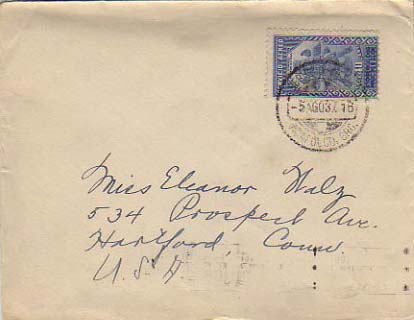 -5 AGO 37 16
Miss Eleanor Walz
534 Prospect Ave.
Hartford, Conn
U.S.A